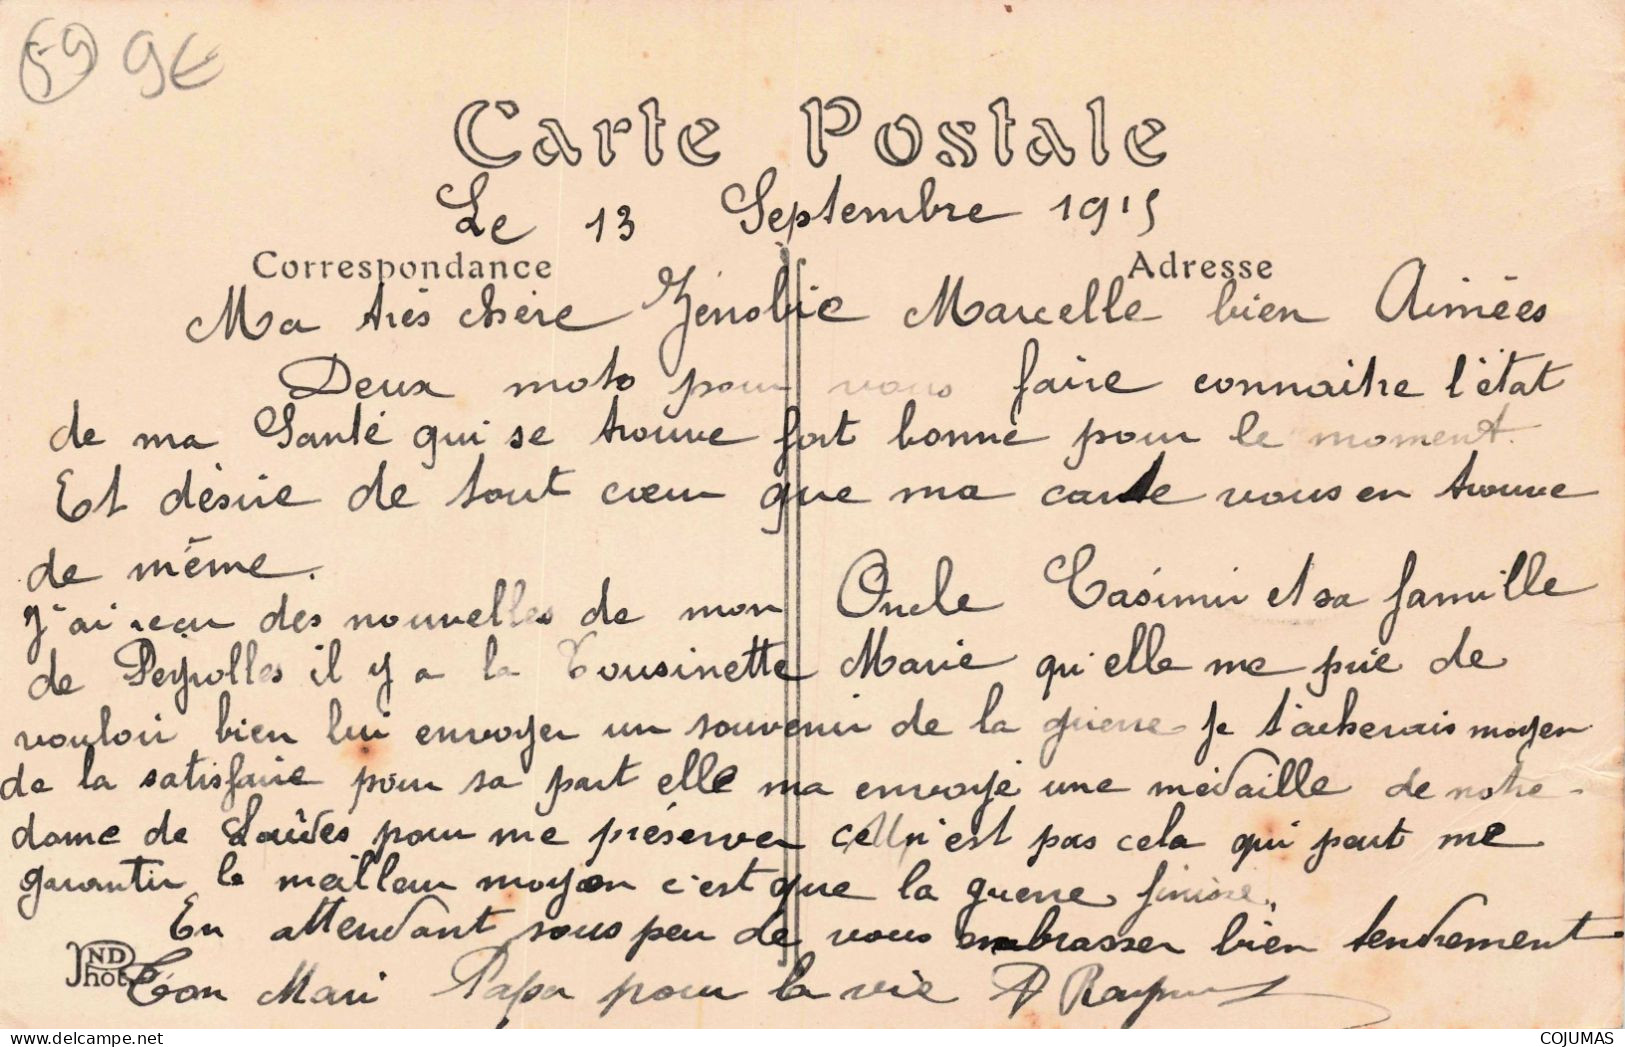 59 9€
Carte Postale
Le 13 Septembre 1915
Correspondance
Adresse
Ma très chère Zénobie Marcelle bien Aimées
Deux mots pour vous faire connaitre l'état
de ma Santé qui se trouve fort bonne pour le moment.
Et désire de tout cœur que ma carte vous en trouve
de même.
J'ai reçu des nouvelles de mon Oncle Casimir et sa famille
de Peyrolles il y a la Cousinette Marie qu'elle me prie de
vouloir bien lui envoyer un souvenir de la guerre je tacherais moyen
de la satisfaire pour sa part elle ma envoyé une médaille de notre
dame de Lourdes pour me préserver n'est pas cela qui peut me
garantir le meilleur moyen c'est que la guerre finisse.
En attendant sous peu de vous embrasser bien tendrement
Ton Mari Papa pour la vie
ND
Phot
COJUMAS